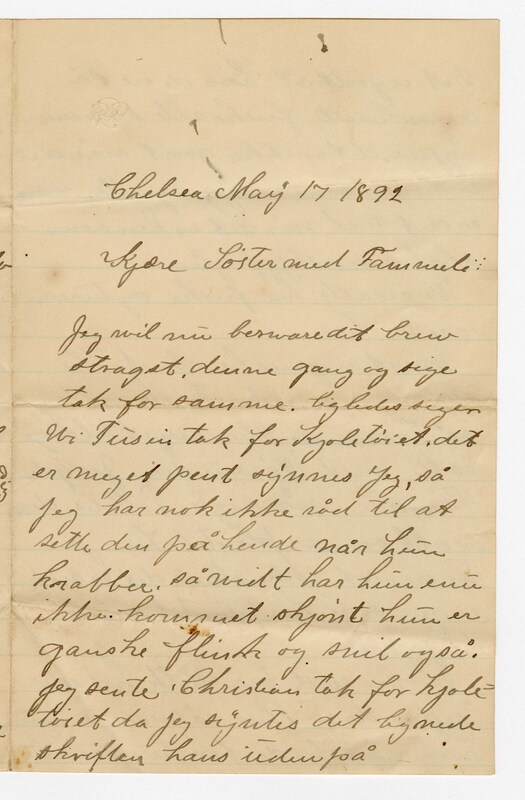 Chelsea May 17 1892
Kjære Söster med Fammeli:
Jeg wil nu berware dit brew
stragst, denne gang og sige
tak for samme. ligledes siger
Wi Tusin tak for Kjoletöiet. det
er meget pent synnes Jeg, så
jeg har nok ikke råd til at
sette den på hende når hun
krabber. så widt har hun enu
ikke kommet skjönt hun er
ganske flink og snil også.
jeg sente Christian tak for kjole-
töiet da jeg syntes det lignede
skriften hans uden på